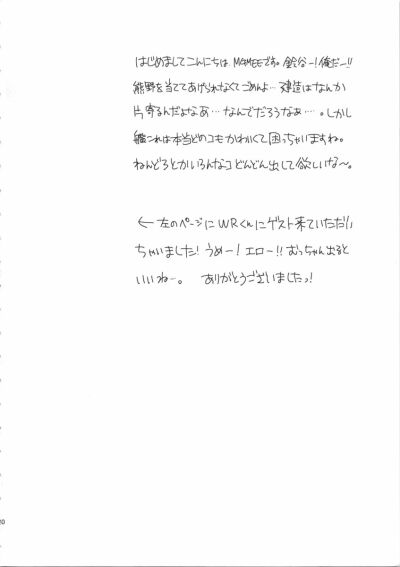 はじめましてこんにちは MGMEEです。鈴谷ー!俺だー!!
熊野を当ててあげられなくてごめんよ…建造はなんか
片寄るんだよなぁ…なんでだろうなぁ…。しかし
艦これは本当どのコもかわいくて困っちゃいますね。
ねんどろとかいろんなコどんどん出して欲しいな〜。
← 左のページにWRくんにゲスト来ていただい
ちゃいました!うめー!エロー!!むっちゃん出ると
いいねー。 ありがとうございましたっ!
20